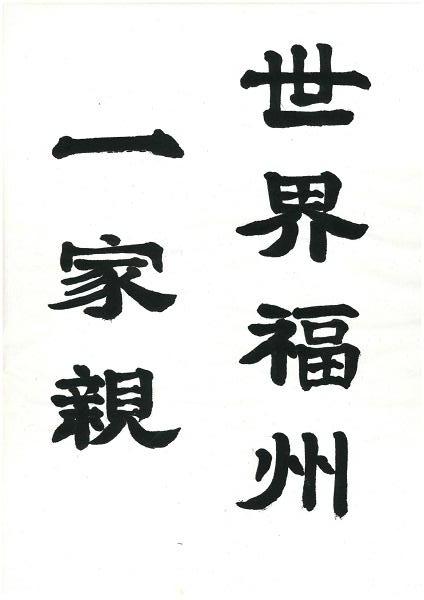 世界福州
一家親